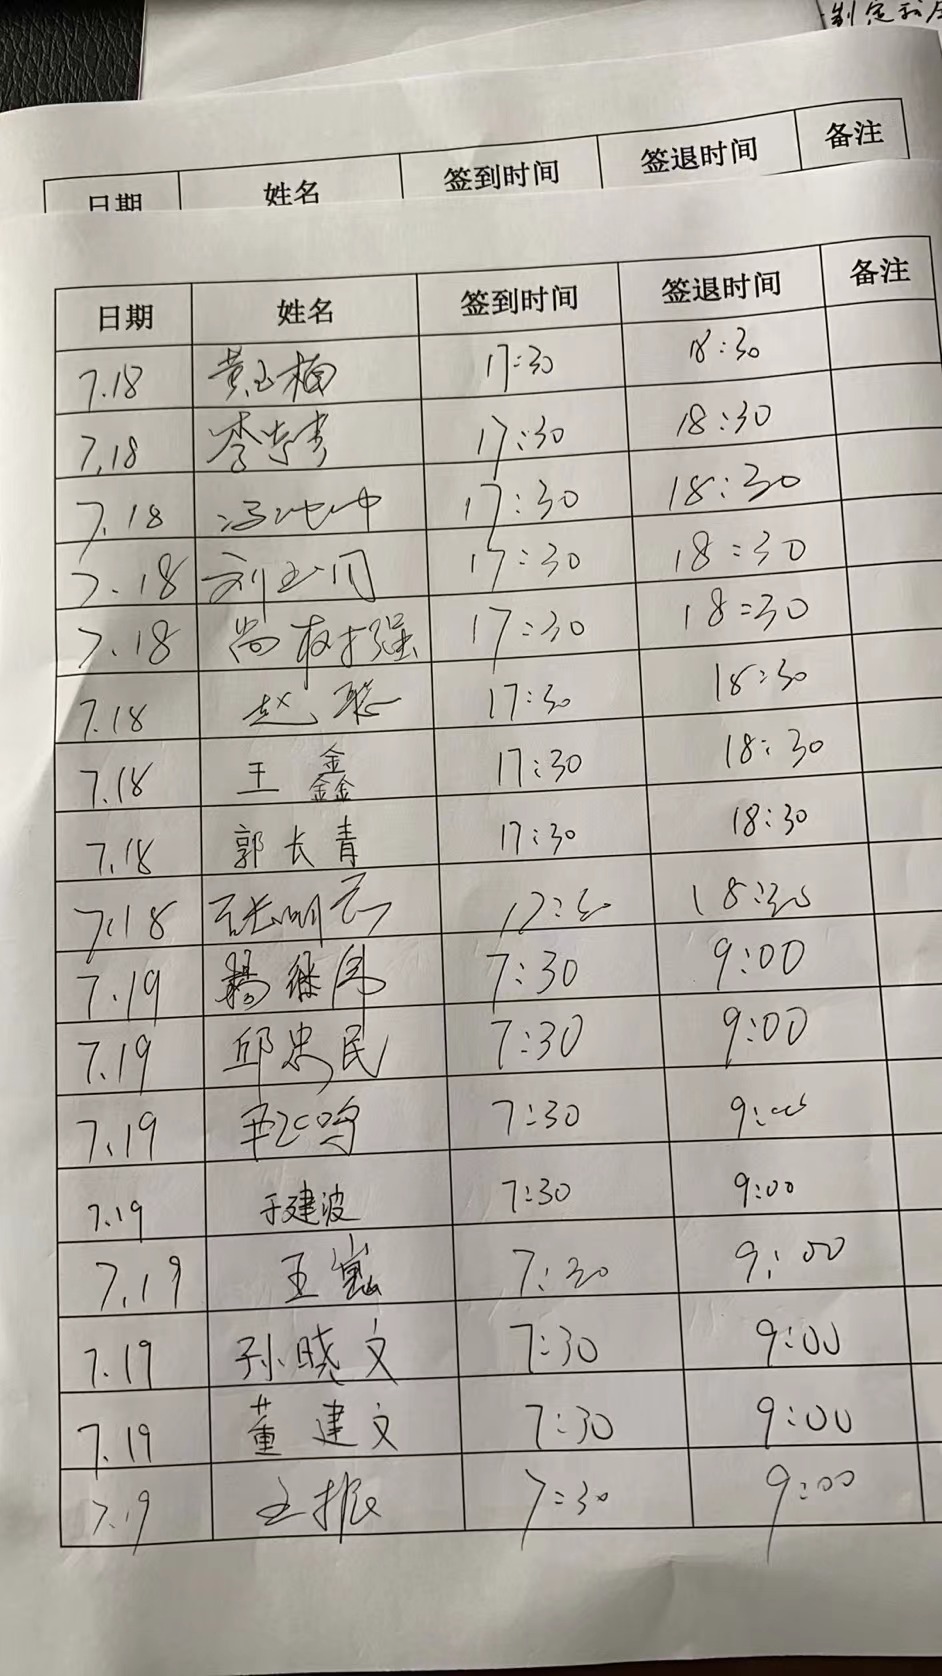 制定和
日期 姓名 签到时间 签退时间 备注
日期 姓名 签到时间 签退时间 备注
7.18 黄玉梅 17:30 18:30
7.18 李 17:30 18:30
7.18 冯 17:30 18:30
7.18 刘玉 17:30 18:30
7.18 尚 强 17:30 18:30
7.18 赵 17:30 18:30
7.18 王鑫 17:30 18:30
7.18 郭长青 17:30 18:30
7.18 张明 17:30 18:30
7.19 杨继伟 7:30 9:00
7.19 邱忠民 7:30 9:00
7.19 鸣 7:30 9:00
7.19 于建波 7:30 9:00
7.19 王嵬 7:30 9:00
7.19 孙晓文 7:30 9:00
7.19 董建文 7:30 9:00
7.19 王振 7:30 9:00